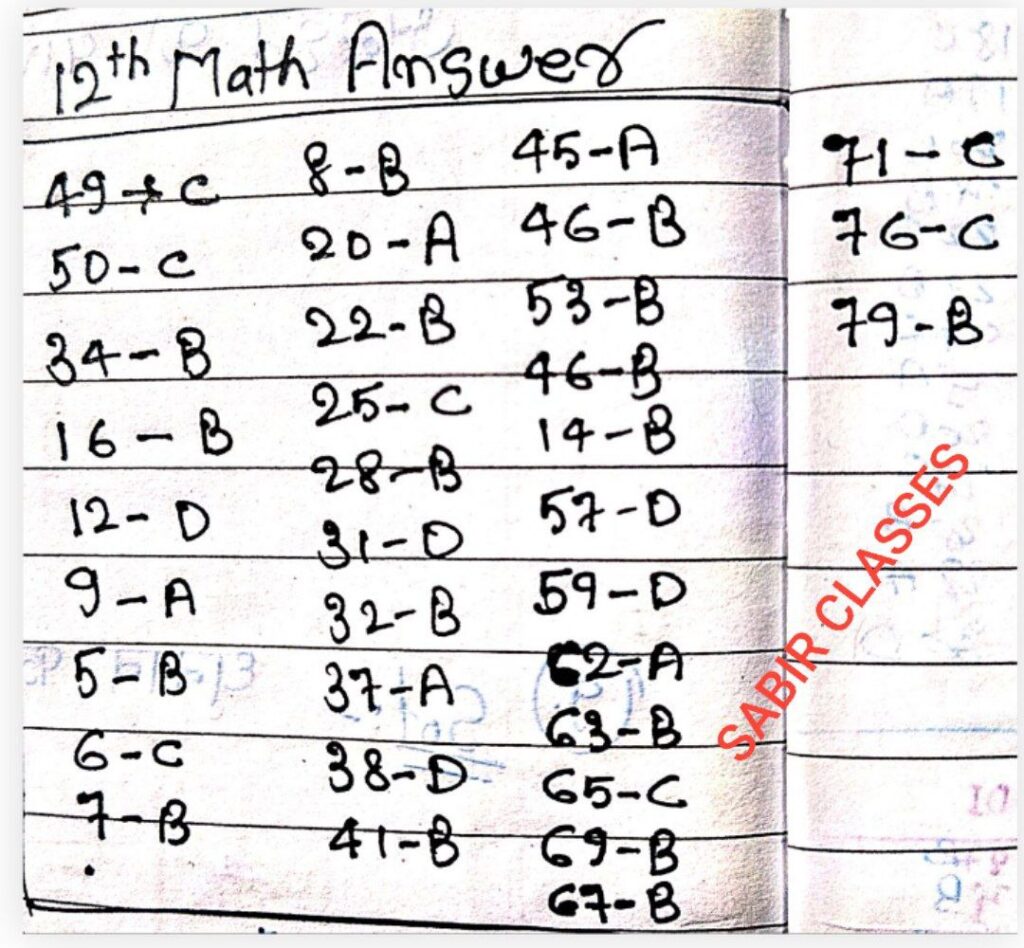 12th Math Answer
49 - C
50 - C
34 - B
16 - B
12 - D
9 - A
5 - B
6 - C
7 - B
8 - B
20 - A
22 - B
25 - C
28 - B
31 - D
32 - B
37 - A
38 - D
41 - B
45 - A
46 - B
53 - B
46 - B
14 - B
57 - D
59 - D
62 - A
63 - B
65 - C
69 - B
67 - B
71 - C
76 - C
79 - B
SABIR CLASSES